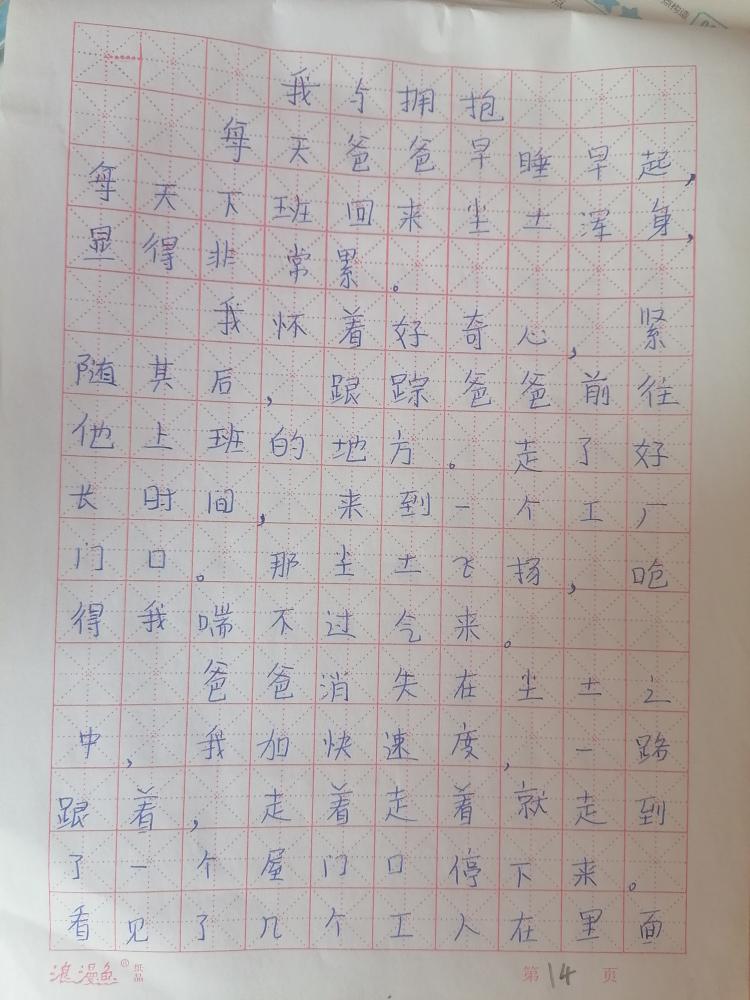 我与拥抱
每天爸爸早睡早起，
每天下班回来尘土浑身，
显得非常累。
我怀着好奇心，紧
随其后，跟踪爸爸前往
他上班的地方。走了好
长时间，来到一个工厂
门口。那尘土飞扬，呛
得我喘不过气来。
爸爸消失在尘土之
中，我加快速度，一路
跟着，走着走着就走到
了一个屋门口停下来。
看见了几个工人在里面
浪漫鱼® 纸品
第14页